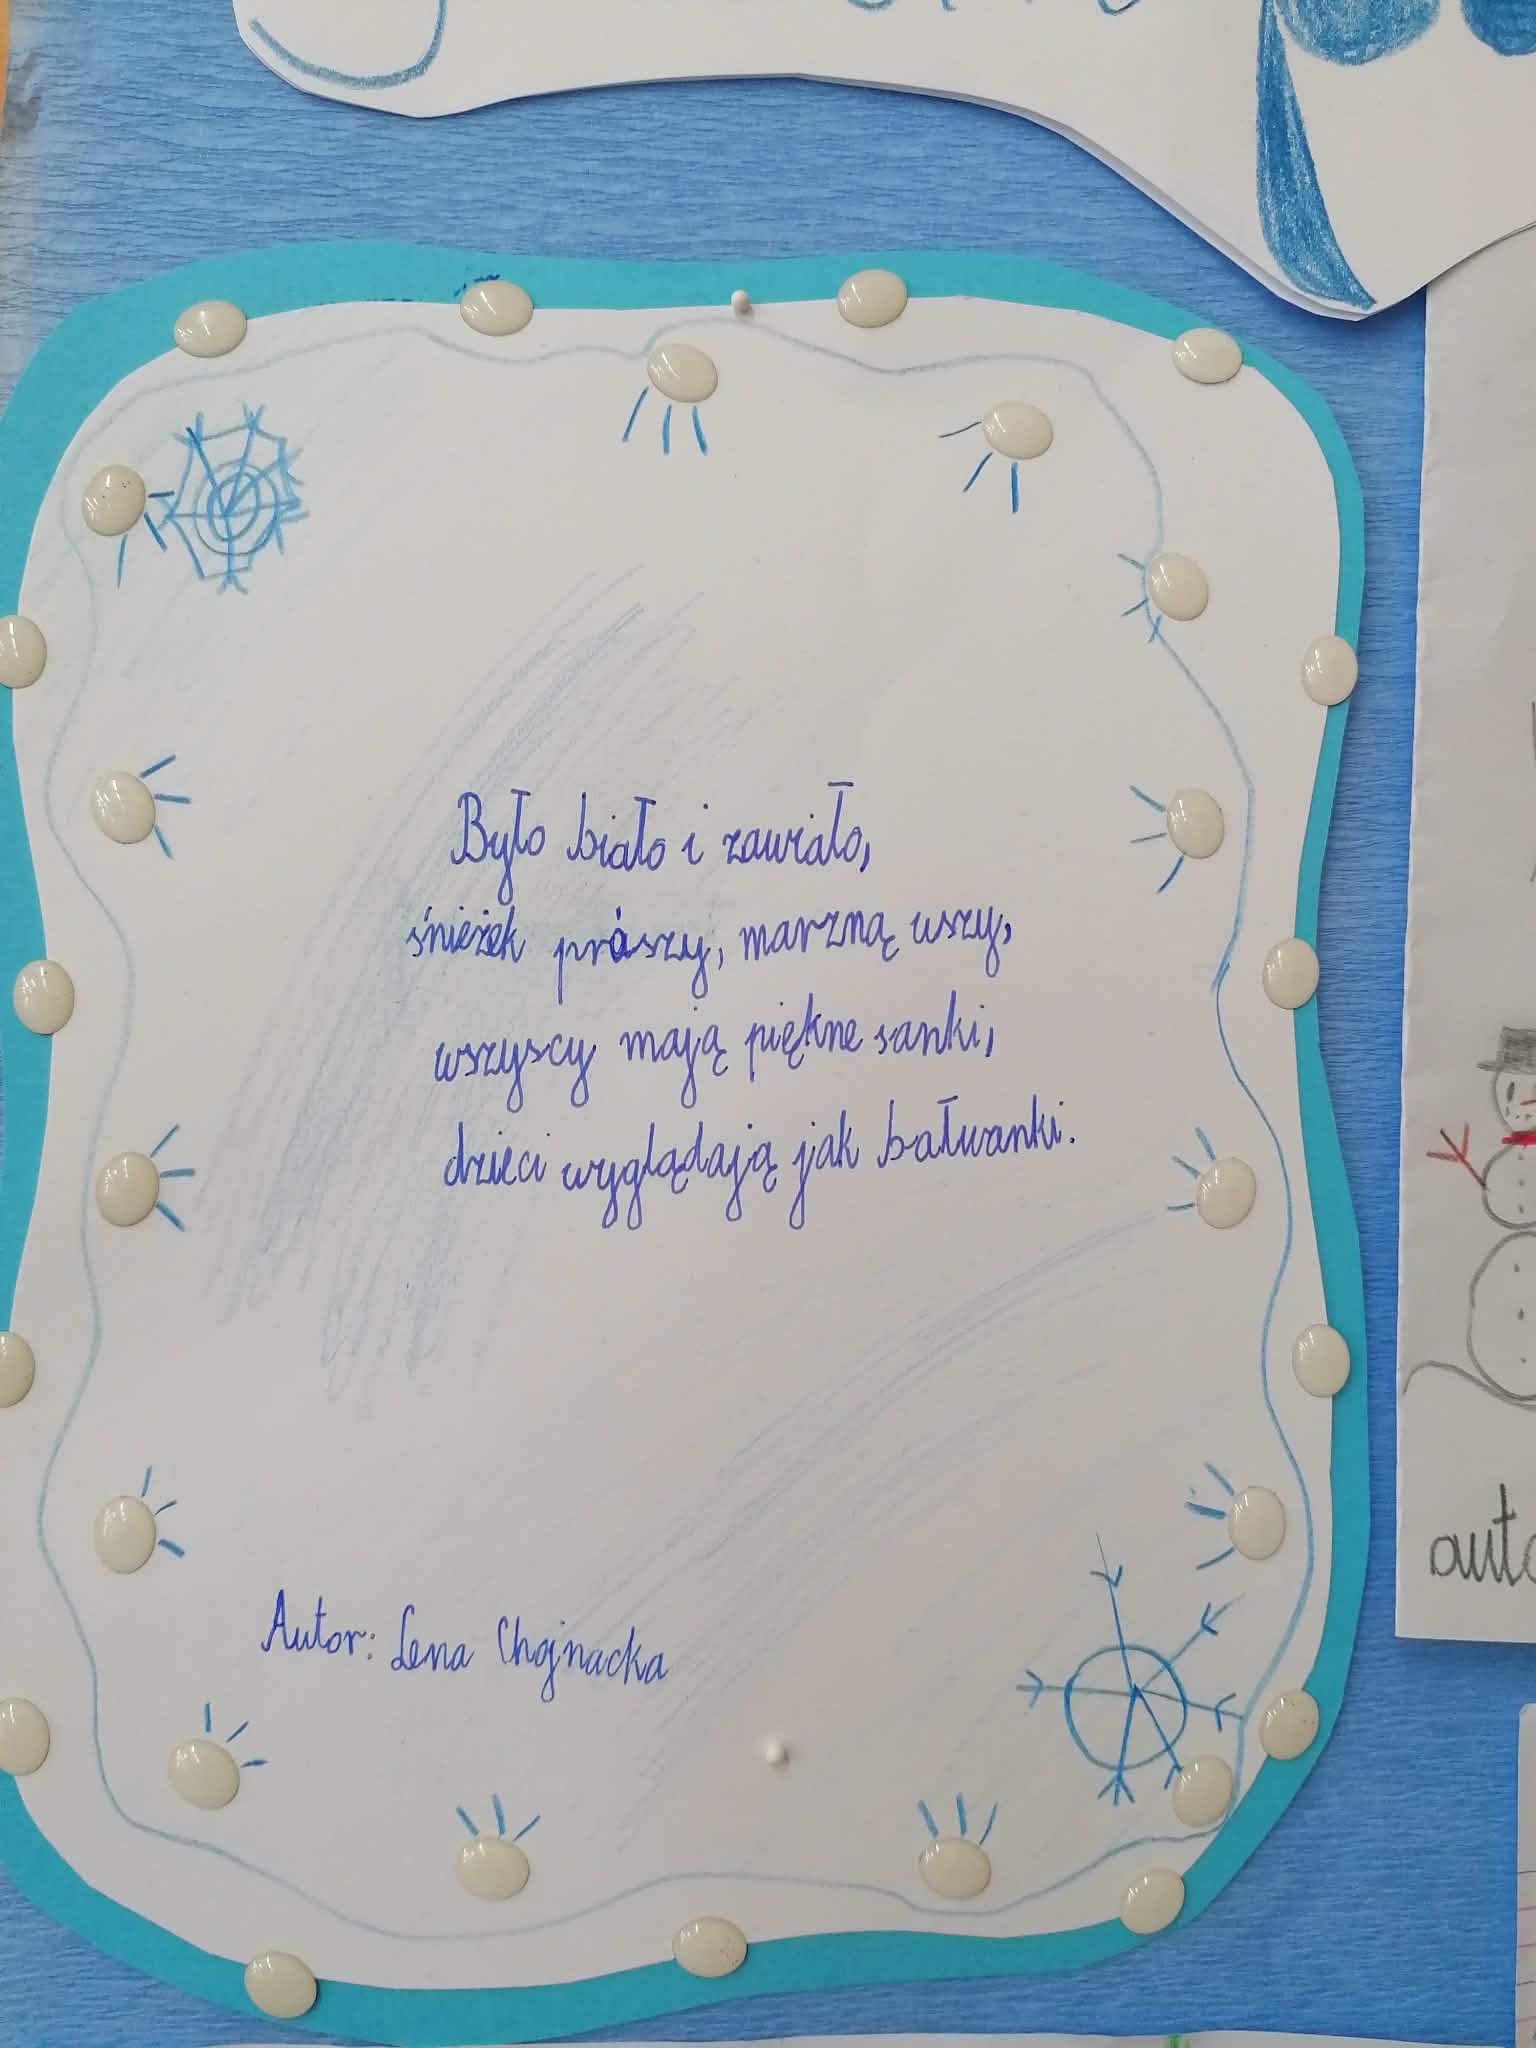 Było biało i zawiało,
śnieżek prószy, marzną wszy,
wszyscy mają piękne sanki,
dzieci wyglądają jak bałwanki.
Autor: Lena Chojnacka